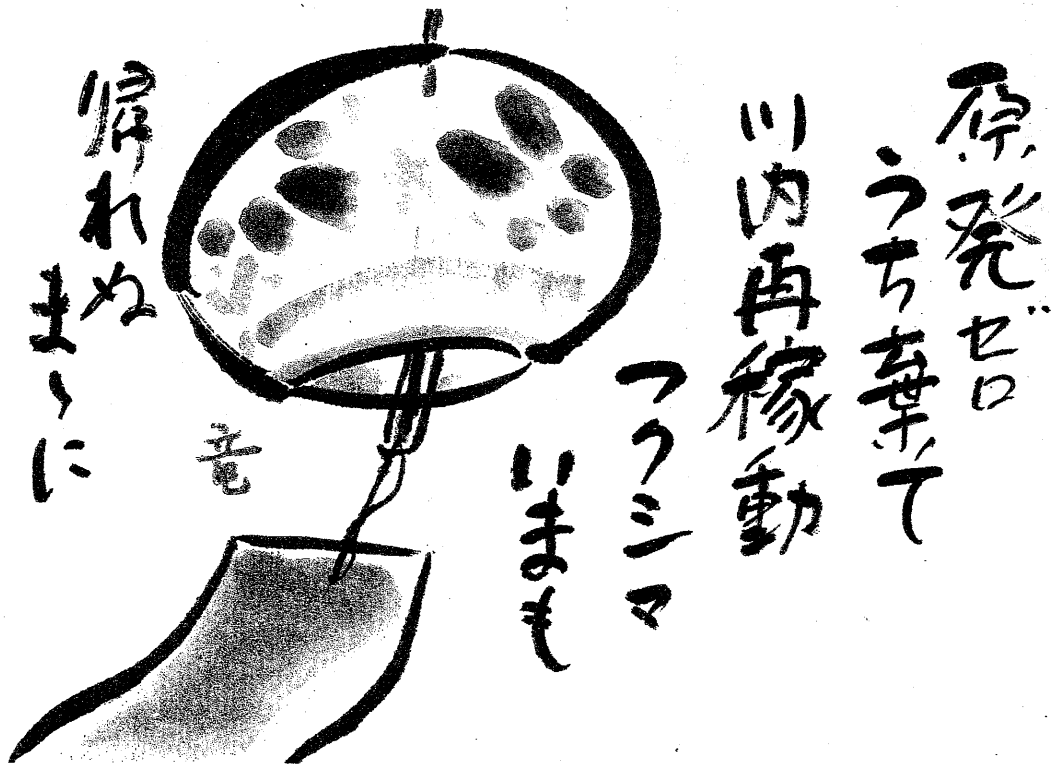 原発ゼロ
うち棄て
川内再稼動
フクシマ
いまも
帰れぬ
まゝに
竜